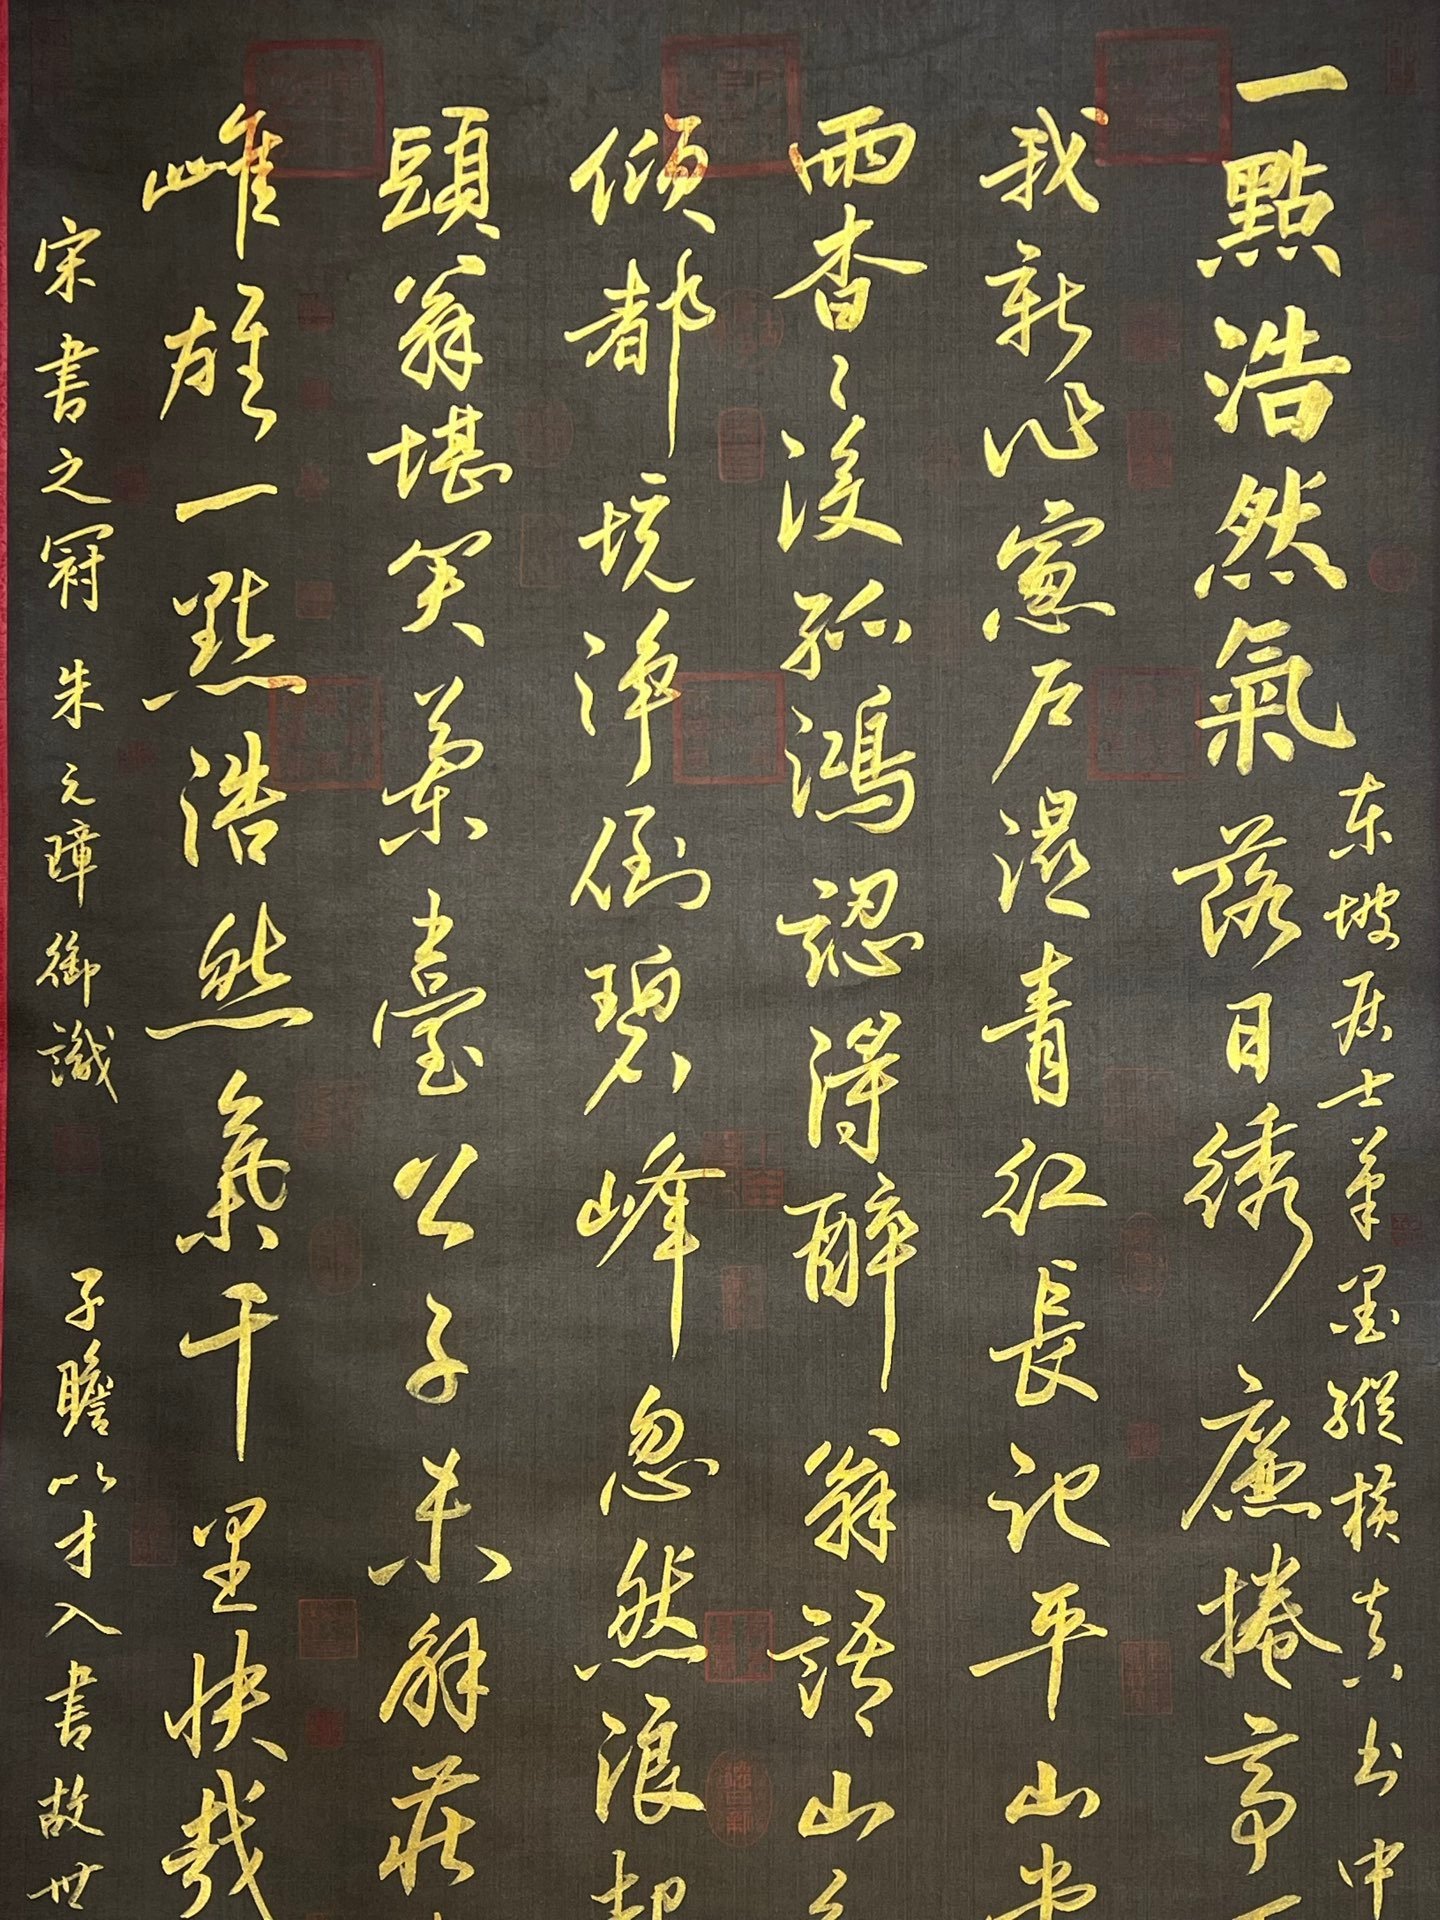 一點浩然氣落日繡廉捲亭下
东坡居士笔墨縱横真书中
我新作窻戶濕青红長記平山堂
雨杳々沒孤鴻認得醉翁語山
傾都境净倒碧峰忽然浪起
頭翁堪笑蘭臺公子未解莊
雌雄一點浩然氣千里快哉
宋書之冠朱元璋御識
子瞻以才入書故世